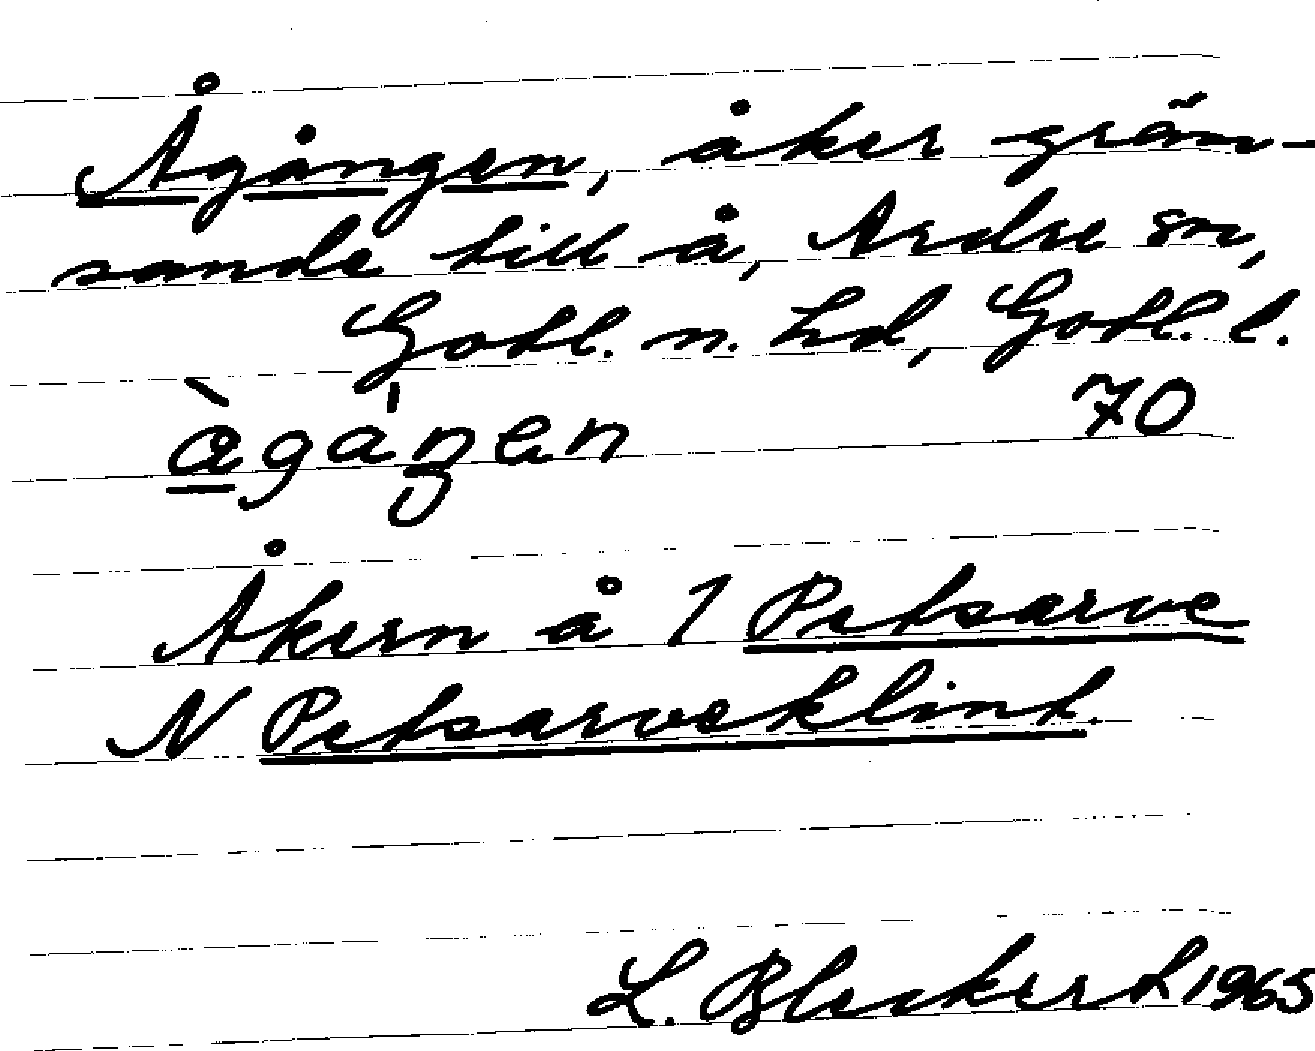 Ågången, åker grän-
sande till å, Ardre sn,
Gotl. n. hd, Gotl. l.
70
Åkern å 1 Petsarve
N Petsarveklint.
L. Bleckert 1965